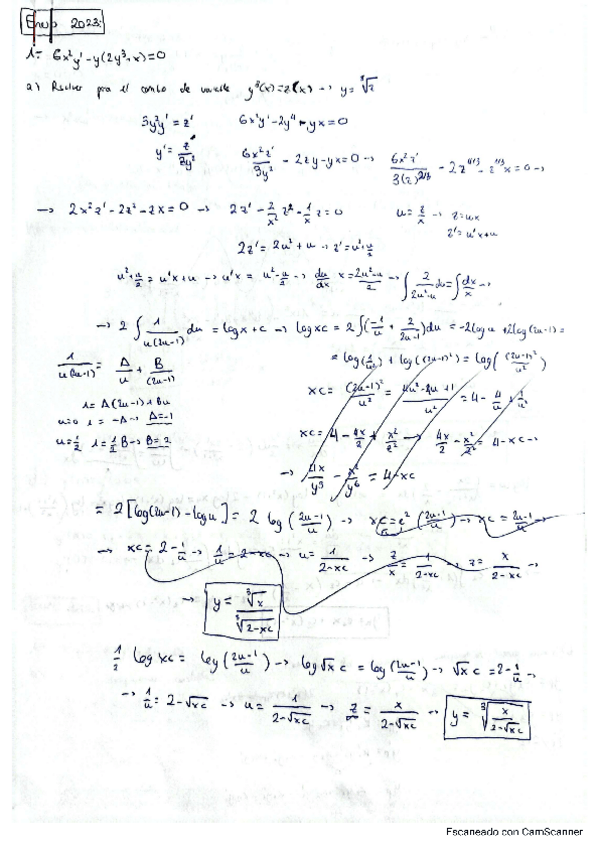 Enero 2023:
1= 6x²y' - y(2y³+x) = 0
a) Resolver para el cambio de variable y³(x) = z(x) → y = ∛z
3y²y' = z'   6x²y' - 2y⁴ - yx = 0
y' = z'/3y²   6x²z'/3y² - 2zy - yx = 0 → 6x²z'/3(z)^2/3 - 2z^4/3 - z^1/3 x = 0 →
→ 2x²z' - 2z² - zx = 0 → 2z' - 2/x² z² - 1/x z = 0   u = z/x → z = ux
z' = u'x + u
2z' = 2u² + u → z' = u² + u/2
u² + u/2 = u'x + u → u'x = u² - u/2 → du/dx x = 2u²-u/2 → ∫ 2/2u²-u du = ∫ dx/x →
→ 2 ∫ 1/u(2u-1) du = log x + c → log xc = 2 ∫ (-1/u + 2/2u-1) du = -2 log u + 2 log(2u-1) =
1/u(2u-1) = A/u + B/(2u-1)   = log(1/u²) + log((2u-1)²) = log((2u-1)²/u²)
1 = A(2u-1) + Bu   xc = (2u-1)²/u² = 4u²-4u+1/u² = 4 - 4/u + 1/u²
u=0 1 = -A → A = -1
u=1/2 1 = 1/2 B → B = 2   xc = 4 - 4x/z + x²/z² → 4x/z - x²/z² = 4 - xc →
→ 4x/y³ - x²/y⁶ = 4 - xc
= 2[log(2u-1) - log u] = 2 log(2u-1/u) → xc = e² (2u-1/u) → xc = 2u-1/u →
→ xc = 2 - 1/u → 1/u = 2 - xc → u = 1/2-xc → z/x = 1/2-xc → z = x/2-xc →
→ y = ∛x/∛2-xc
1/2 log xc = log(2u-1/u) → log √x c = log(2u-1/u) → √x c = 2 - 1/u →
→ 1/u = 2 - √xc → u = 1/2-√xc → z = x/2-√xc → y = ∛x/2-√xc
Escaneado con CamScanner